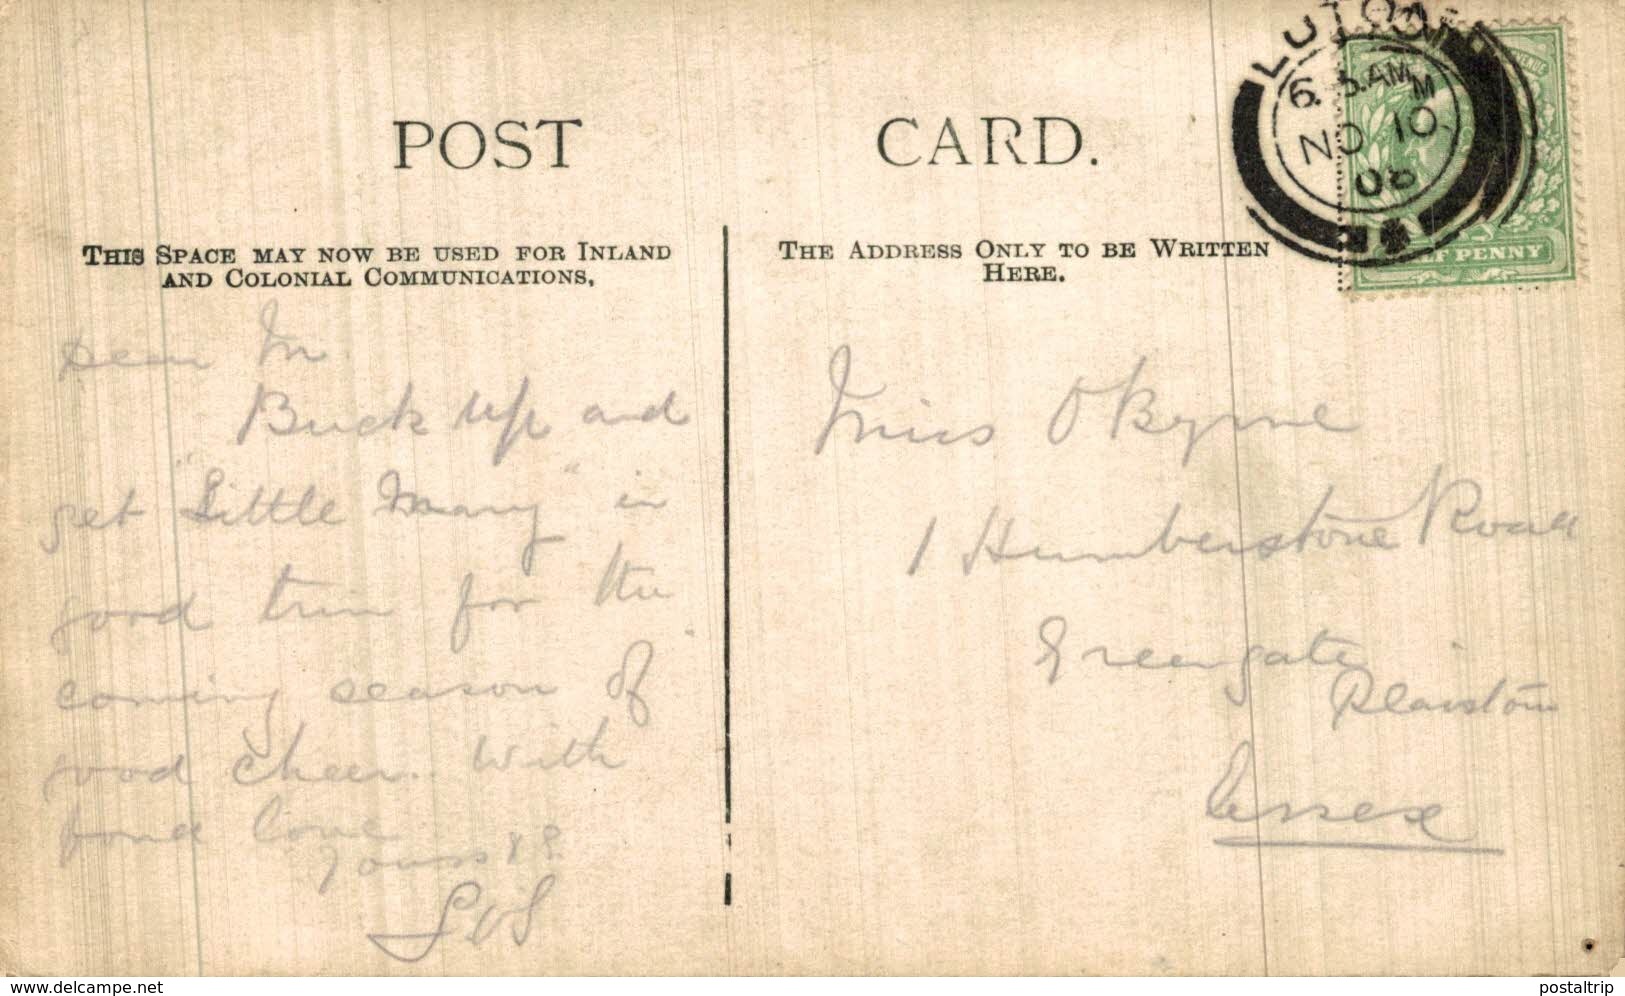 POST CARD.
THIS SPACE MAY NOW BE USED FOR INLAND
AND COLONIAL COMMUNICATIONS,
Dear M
Buck up and
get "Little Mary" in
good trim for the
coming season of
good cheer. With
fond love
Yours
THE ADDRESS ONLY TO BE WRITTEN
HERE.
Miss O'Byrne
1 Humberstone Road
Greengate
Plaistow
Essex
LUTON
AM
NO 10
PENNY
www.delcampe.net
postaltrip